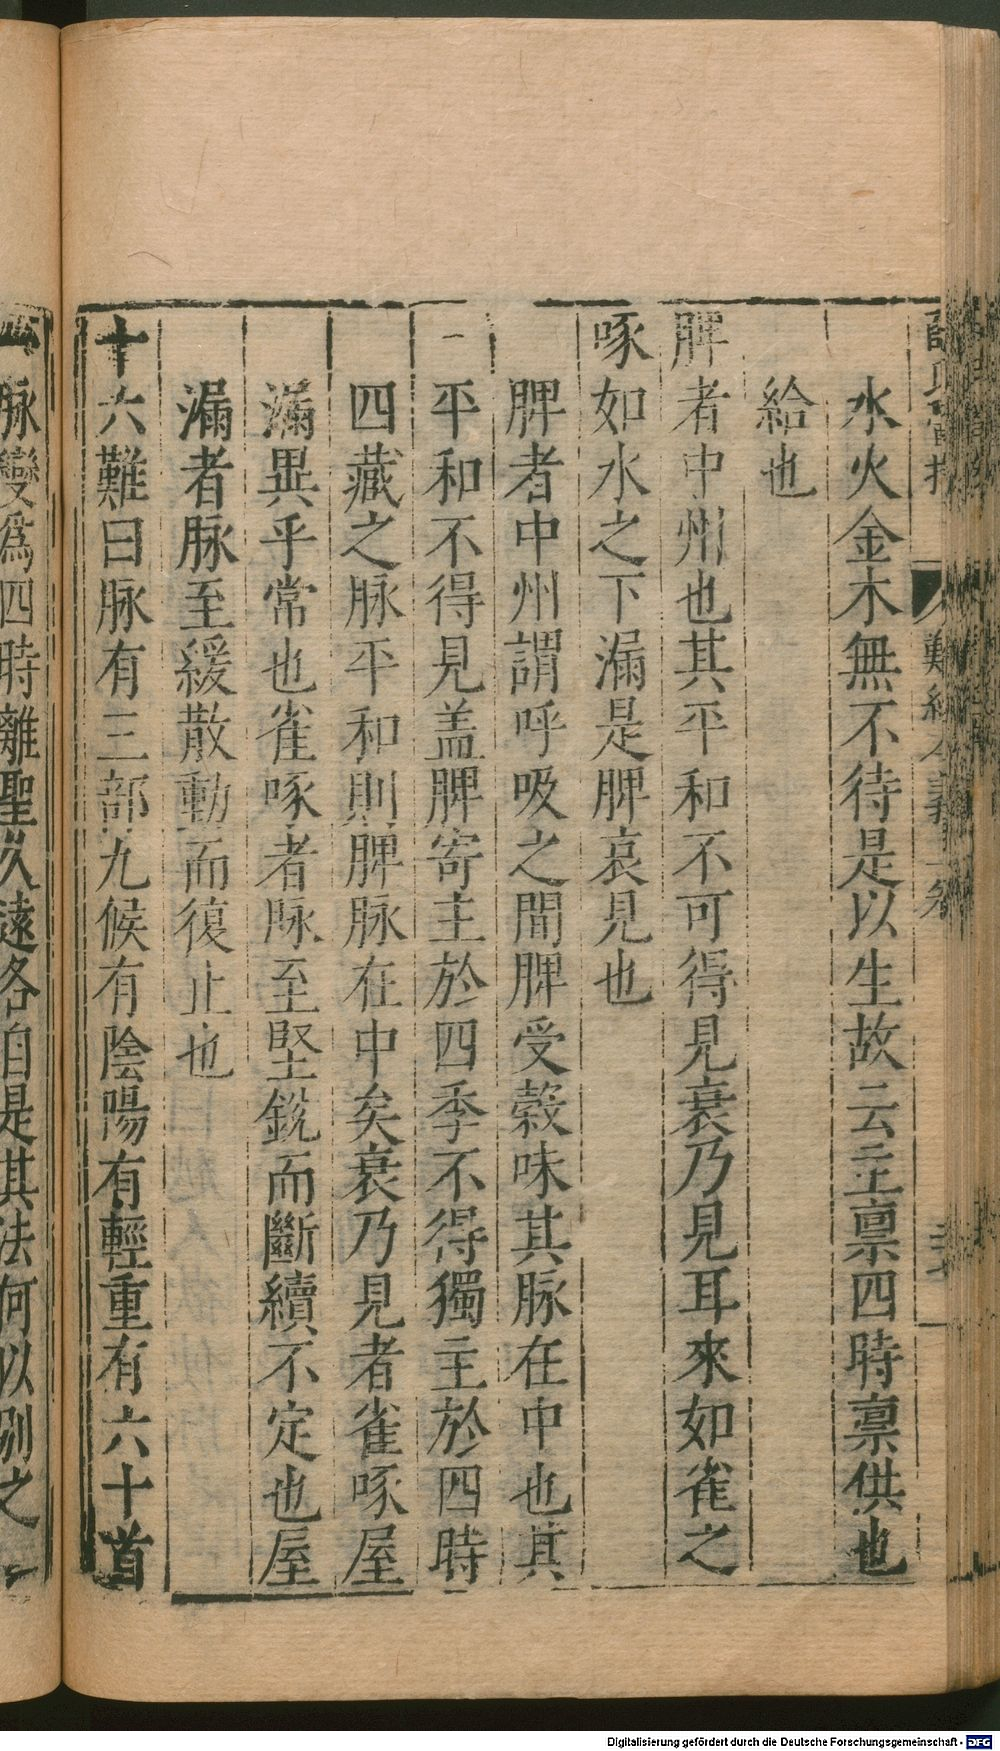 難經本義二卷
水火金木無不待是以生故云主禀四時禀供也
給也
脾者中州也其平和不可得見衰乃見耳來如雀之
啄如水之下漏是脾衰見也
脾者中州謂呼吸之間脾受榖味其脉在中也其
平和不得見盖脾寄主於四季不得獨主於四時
四藏之脉平和則脾脉在中矣衰乃見者雀啄屋
漏異乎常也雀啄者脉至堅銳而斷續不定也屋
漏者脉至緩散動而復止也
十六難曰脉有三部九候有陰陽有輕重有六十首
一脉變爲四時離聖久遠各自是其法何以别之
Digitalisierung gefördert durch die Deutsche Forschungsgemeinschaft - DFG